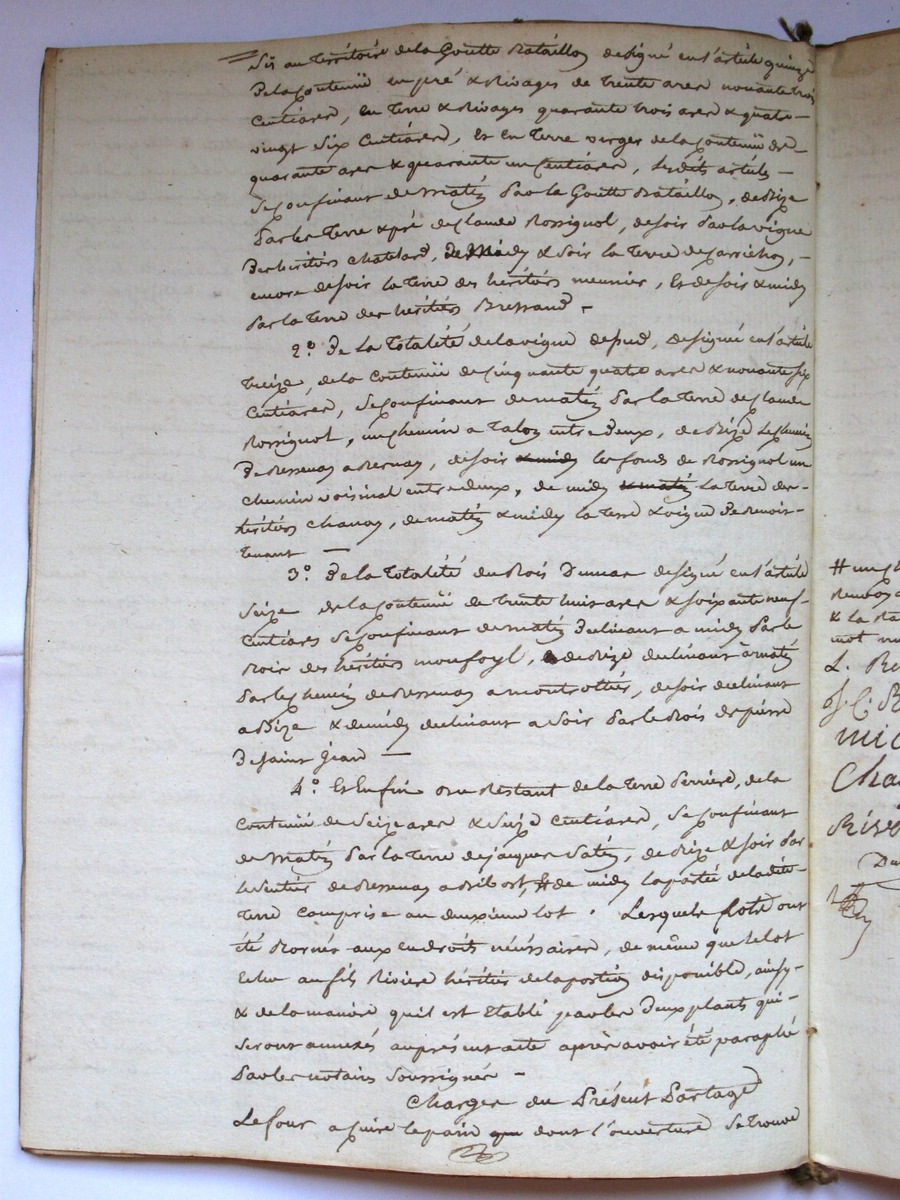 Sis au territoire de la Goutte Bataillon designé en l'article quinze
De la Contenüe en pré & Rivages de trente ares nonante trois
Centiares, en terre & Rivages quarante trois ares & quatre-
vingt six Centiares, Et en terre verger de la Contenüe de-
quarante ares & quarante un Centiares, Lesdits articles —
Se Confinant de matin par la Goutte Bataillon, de Bize
par les terre & pré de Claude Rossignol, de soir par la vigne
Des héritiers Chatelard, de Midy & Soir la terre de Carrichon, -
encore de soir la terre des héritiers meunier, Et de soir & midy
par la terre des héritiers Bressand -
2.° De la totalité de la vigne de sud, designée en l'article
treize, de la Contenüe de Cinquante quatre ares & nonante six
Centiares, Se Confinant de matin par la terre de Claude
Rossignol, un chemin a talon entre deux, de Bize le chemin
De Ressenas a Bernay, de soir & midy les fonds de Rossignol un
chemin voisinal entre deux, de midy & matin la terre des-
héritiers Chanay, de matin & midy la terre & vigne De Benoit-
tenant —
3.° De la totalité du Bois Dumas designé en l'article
Seize de la Contenüe de trente huit ares & soixante neuf-
Centiares Se Confinant de matin Declinant a midy par le
Bois des héritiers monfoyl, de Bize declinant a matin
par le chemin de Ressenas a montrottier, de soir declinant
a Bize & de midy declinant a Soir par le Bois de pierre
De saint Jean —
4.° Et Enfin du Restant de la terre perrière, de la
Contenüe de Seize ares & Seize Centiares, Se Confinant
de Matin par la terre de jacques Satin, de Bize & soir par
le sentier de Ressenas a Ribost, # de midy la partie de ladite
terre comprise au deuxième lot. Lesquels flots ont
été Bornés aux endroits nécessaires, de même que le lot
Echu au fils Riviere héritier de la portion disponible, ainsy-
& de la maniere quil est Etabli par les deux plants qui-
Seront annexés au présent acte après avoir été paraphé
par les notaires Soussignés -
Charges du Présent Partage
Le four a Cuire le pain que dont l'ouverture Se trouve
L. R
mic
Cha
Riv